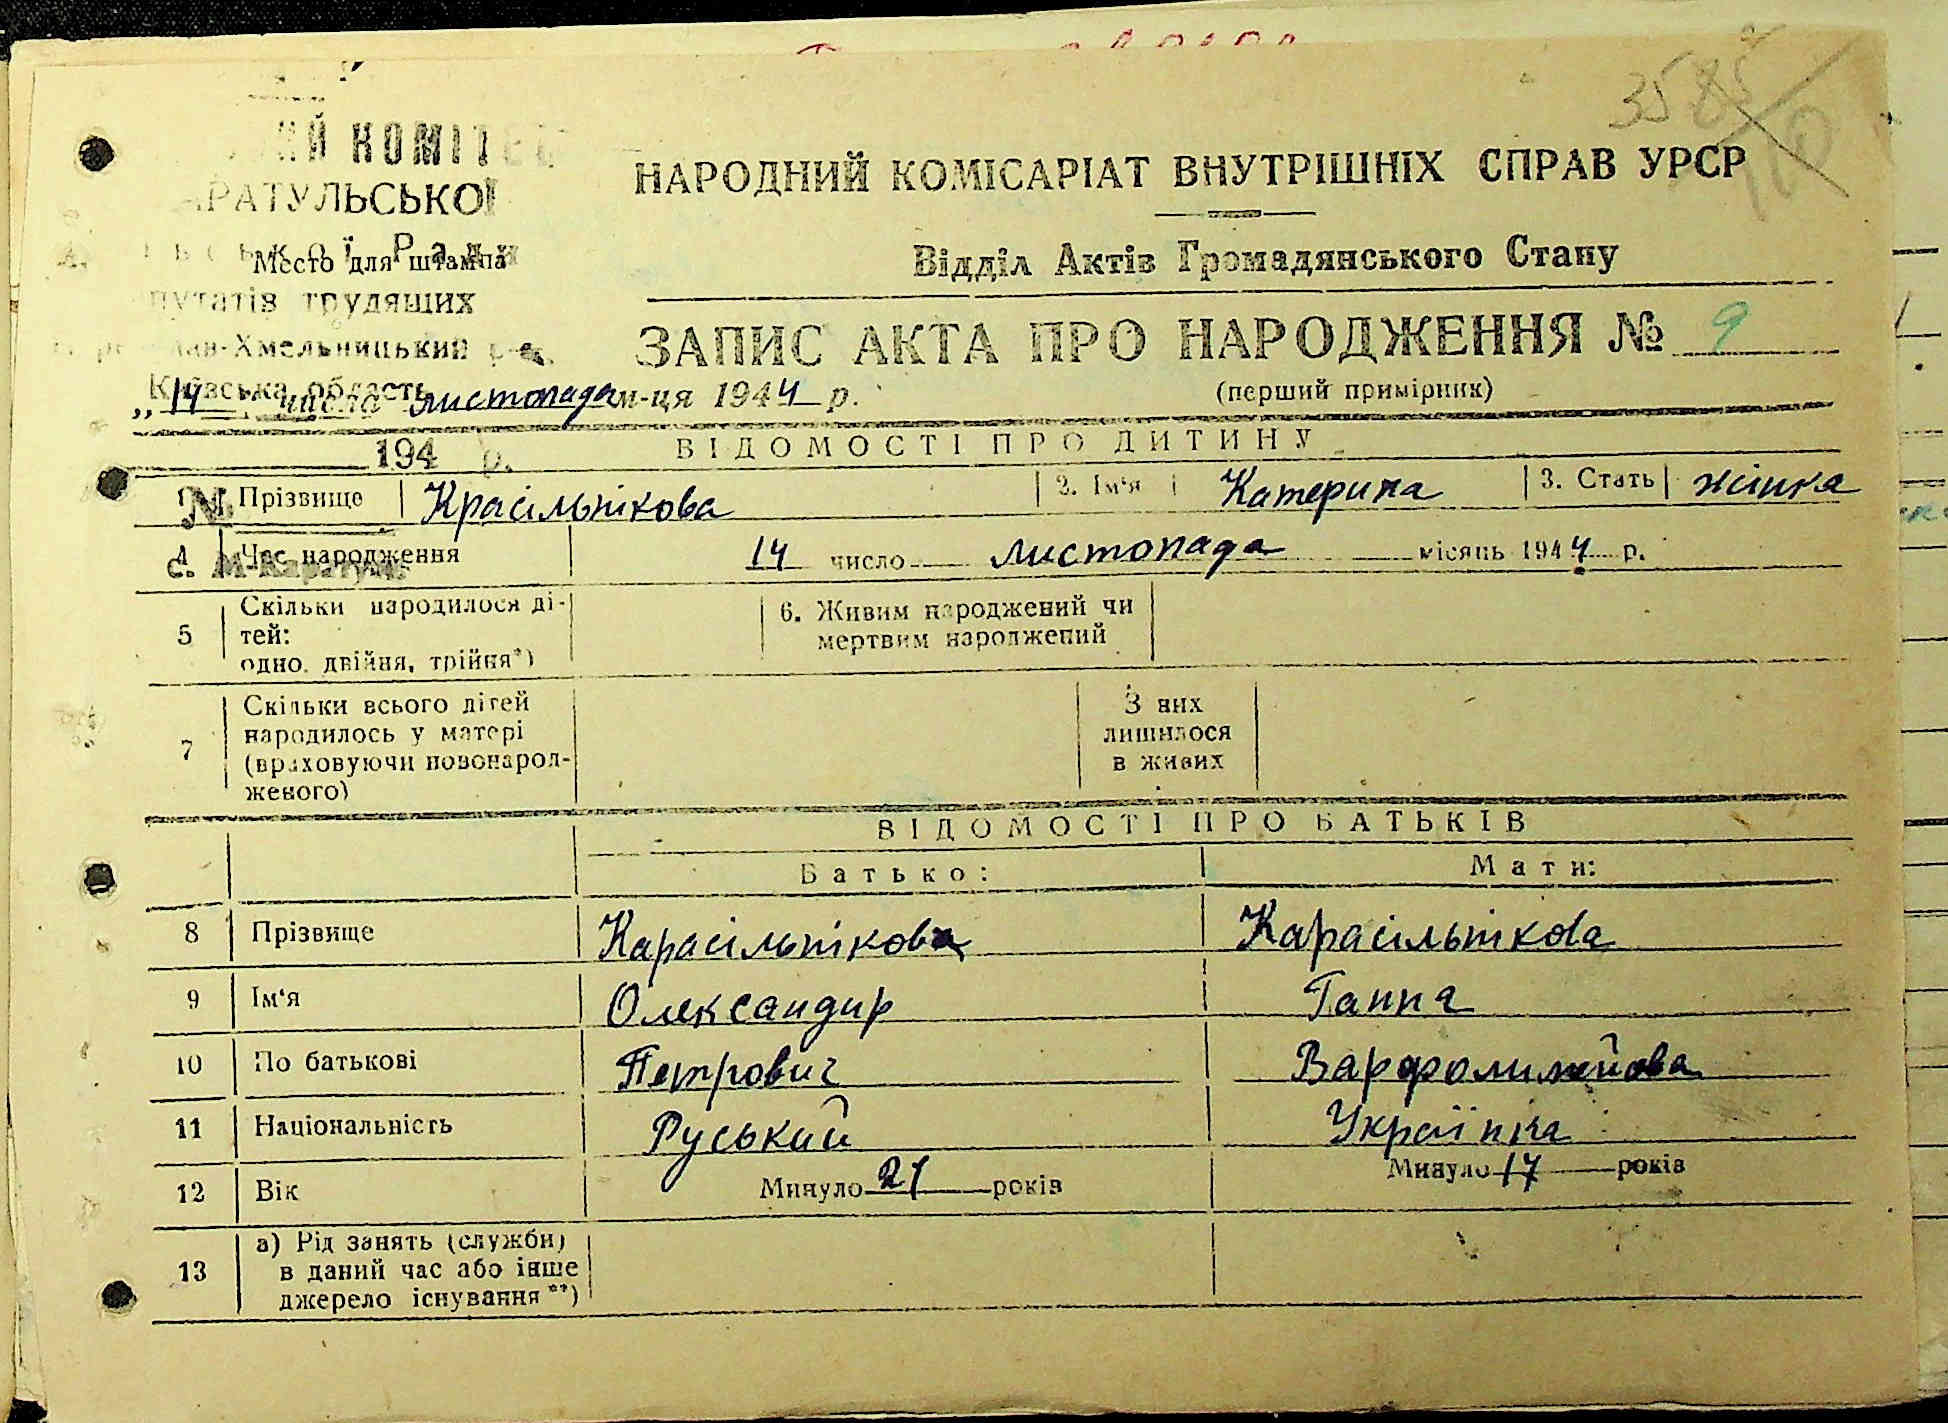 КОМІТЕ
РАТУЛЬСЬКОЇ
Ради
Место для штампа
путатів трудящих
Хмельницький
Київська область
„14" числа листопада м-ця 1944 р.
194 р.
№
с. М-Каратуль
3585
НАРОДНИЙ КОМІСАРІАТ ВНУТРІШНІХ СПРАВ УРСР
Відділ Актів Громадянського Стану
ЗАПИС АКТА ПРО НАРОДЖЕННЯ № 9
(перший примірник)
ВІДОМОСТІ ПРО ДИТИНУ
1 Прізвище Красільнікова 2. Ім'я Катерина 3. Стать жінка
4 Час народження 14 число листопада місяць 1944 р.
5 Скільки народилося ді-
тей:
одно, двійня, трійня*)
6. Живим народжений чи
мертвим народжений
7 Скільки всього дітей
народилось у матері
(враховуючи новонарод-
женого)
З них
лишилося
в живих
ВІДОМОСТІ ПРО БАТЬКІВ
Батько: Мати:
8 Прізвище Карасільнікова Карасільнікова
9 Ім'я Олександир Ганна
10 По батькові Петрович
11 Національність Руський Українка
12 Вік Минуло 21 років Минуло 17 років
13 а) Рід занять (служби)
в даний час або інше
джерело існування**)